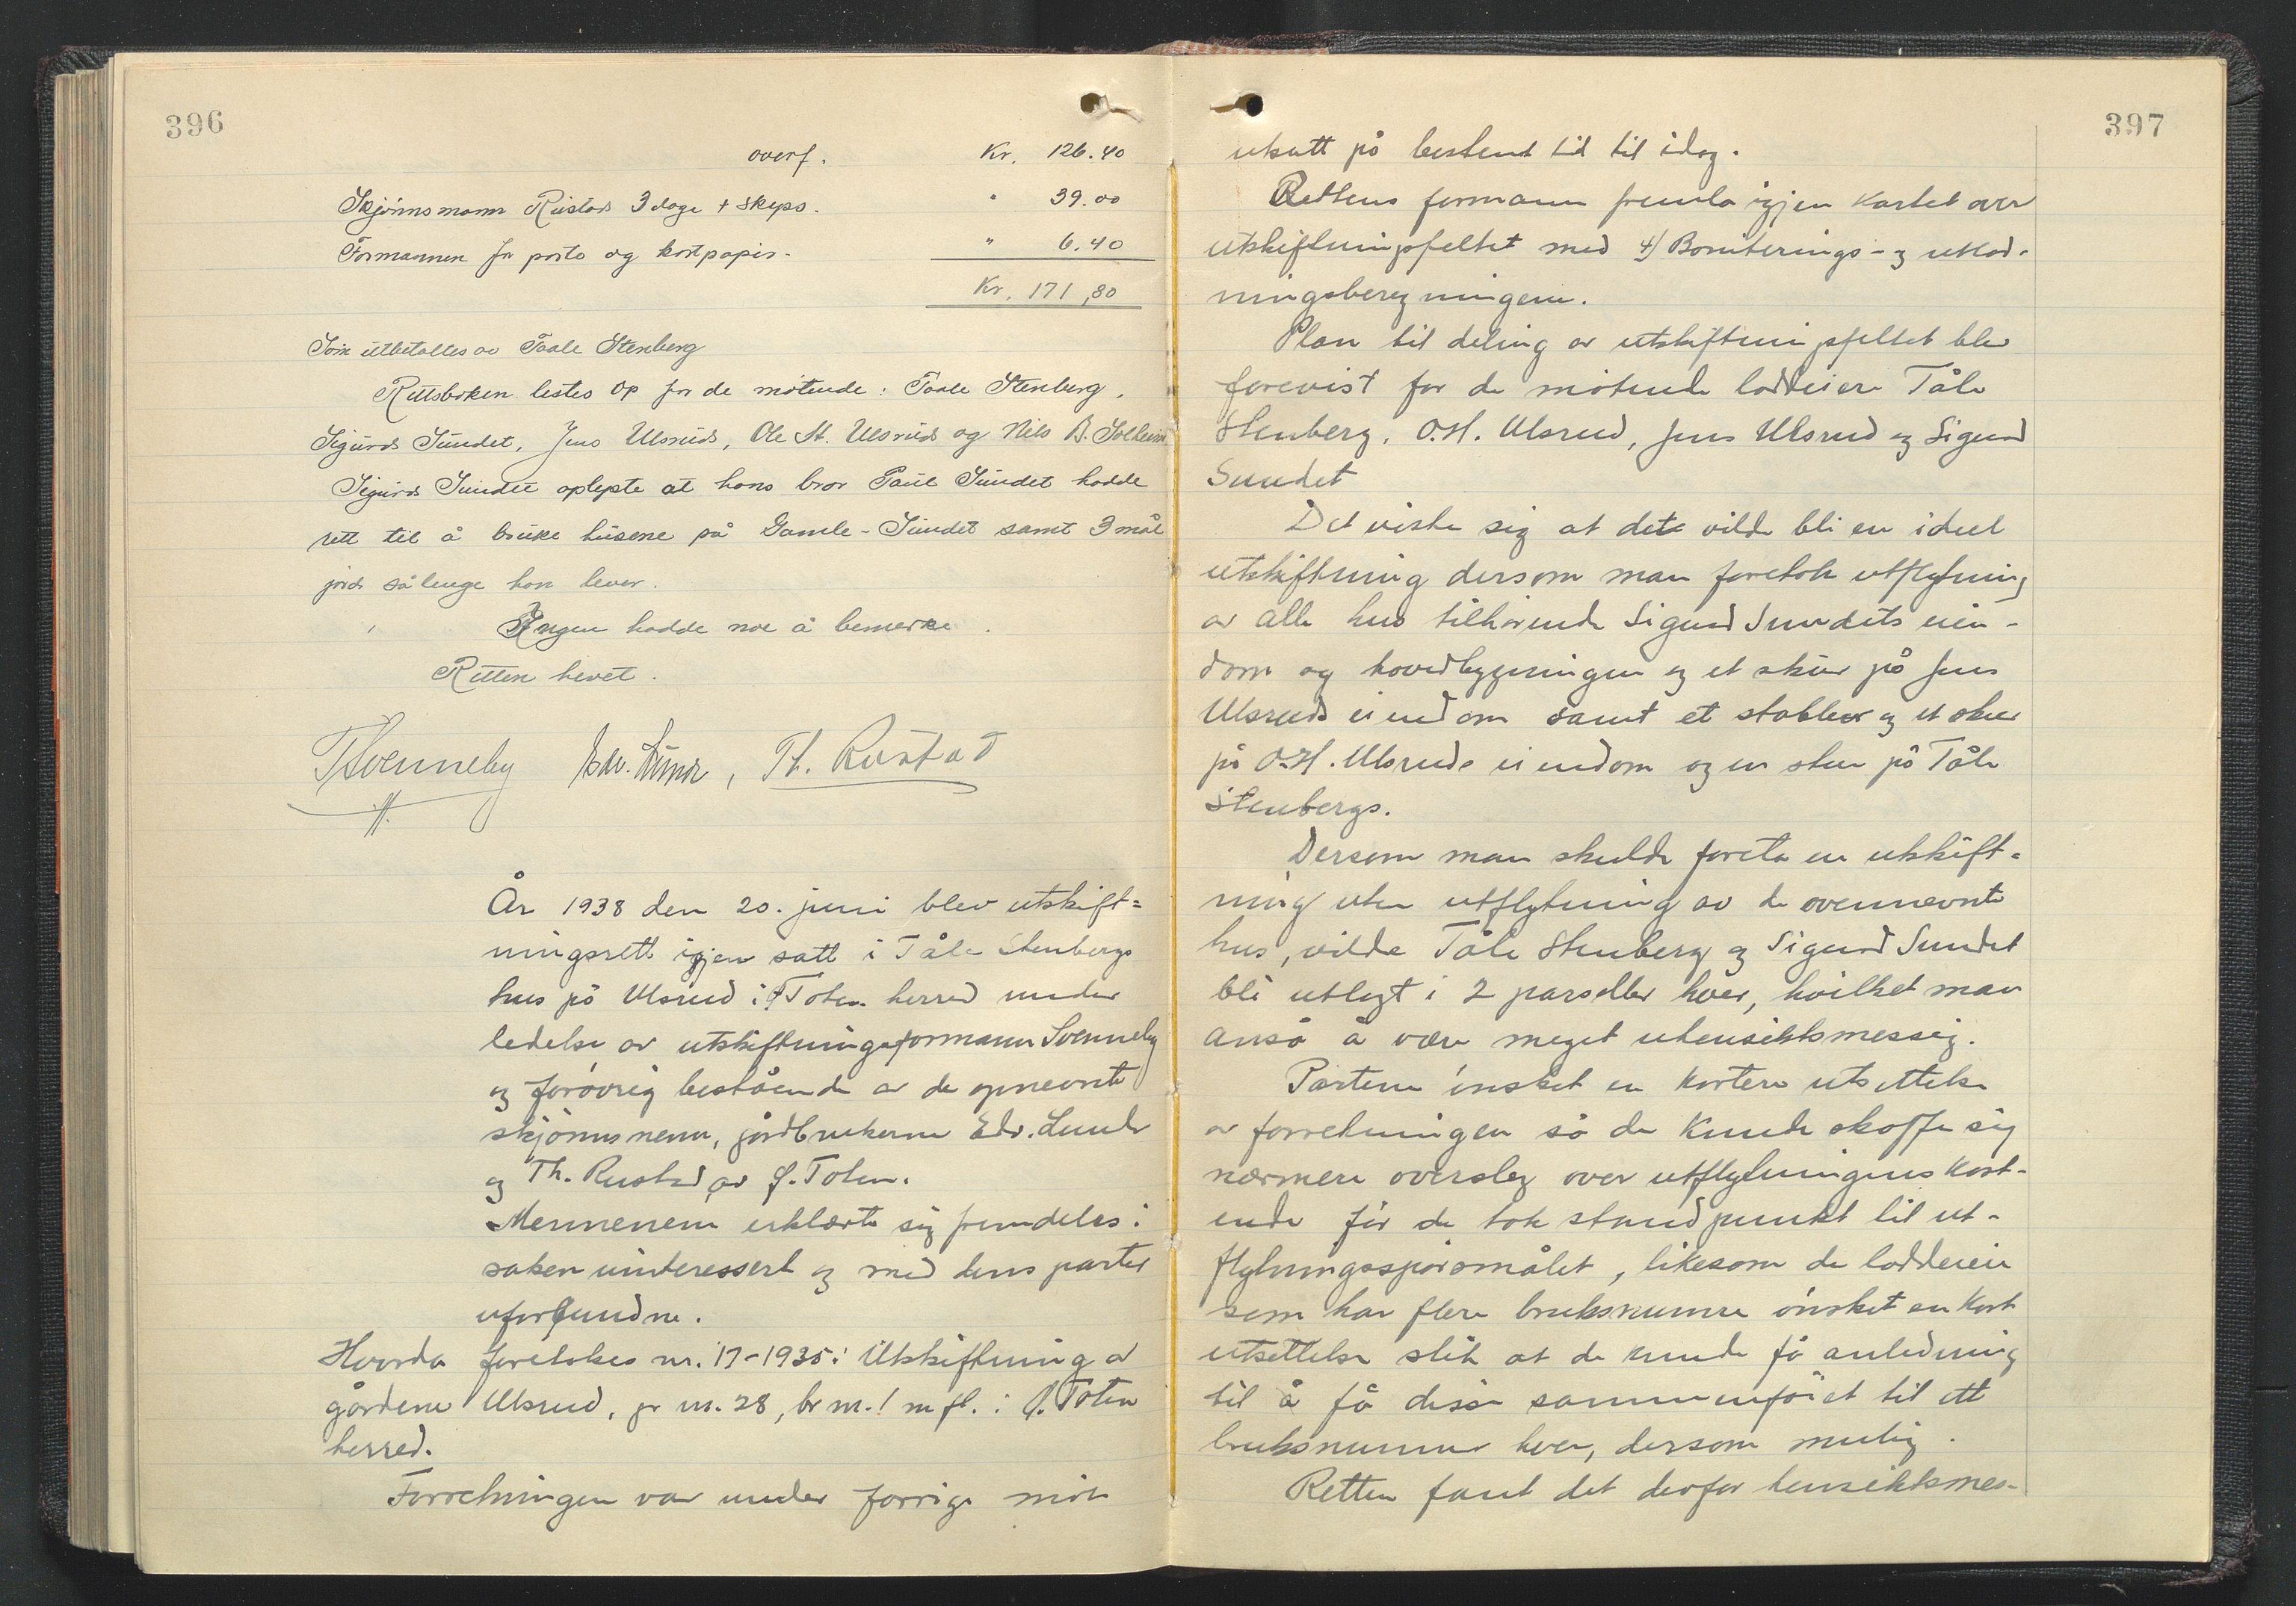 396
overf. Kr. 126.40
Skjönnsmann Rustad 3 dage + skyss. " 39.00
Formannen for porto og kartpapir. " 6.40
Kr. 171,80
Som utbetaltes av Taale Stenberg
Rettsboken lestes op for de møtende: Taale Stenberg,
Sigurd Sundet, Jens Ulsrud, Ole H. Ulsrud og Nils B. Solheim
Sigurd Sundet oplyste at hans bror Paul Sundet hadde
rett til å bruke husene på Gamle-Sundet samt 3 mål
jord så lenge han lever.
Ingen hadde noe å bemerke.
Retten hevet.
TSvenneby Edv. Lunde, Th. Rustad
År 1938 den 20. juni blev utskift=
ningsrett igjen satt i Tåle Stenbergs
hus på Ulsrud i Ø. Toten herred under
ledelse av utskiftningsformann Svenneby
og forøvrig bestående av de opnevnte
skjønnsmenn, jordbrukerne Edv. Lunde
og Th. Rustad av Ø. Toten.
Mennenem erklærte sig fremdeles i
saken uinteressert og med dens parter
uforbundne.
Hvorda foretokes nr. 17-1935: Utskiftning av
gårdene Ulsrud, gr. nr. 28, br. nr. 1 m. fl. i Ø. Toten
herred.
Forretningen var under forrige möte
397
utsatt på bestemt tid til idag.
Rettens formann fremla igjen kartet over
utskiftningsfeltet med 4) Boniterings- og utlod-
ningsberegningene.
Plan til deling av utskiftningsfeltet blev
forevist for de møtende loddeiere Tåle
Stenberg, O.H. Ulsrud, Jens Ulsrud og Sigurd
Sundet
Det viste sig at det vilde bli en ideel
utskiftning dersom man foretok utflytning
av alle hus tilhørende Sigurd Sundets eien-
dom og hovedbygningen og et skur på Jens
Ulsruds eiendom samt et stabbur og et skur
på O.H. Ulsruds eiendom og en stue på Tåle
Stenbergs.
Dersom man skulde foreta en utskift-
ning uten utflytning av de ovennevnte
hus, vilde Tåle Stenberg og Sigurd Sundet
bli utlagt i 2 parseller hver, hvilket man
anså å være meget uhensiktsmessig.
Partene ønsket en kortere utsettelse
av forretningen så de kunde skaffe sig
nærmere overslag over utflytningens kost-
ende før de tok standpunkt til ut-
flytningsspørsmålet, likesom de loddeiere
som har flere bruksnumre ønsket en kort
utsettelse slik at de kunde få anledning
til å få disse sammenføiet til ett
bruksnummer hver, dersom mulig.
Retten fant det derfor hensiktsmes-